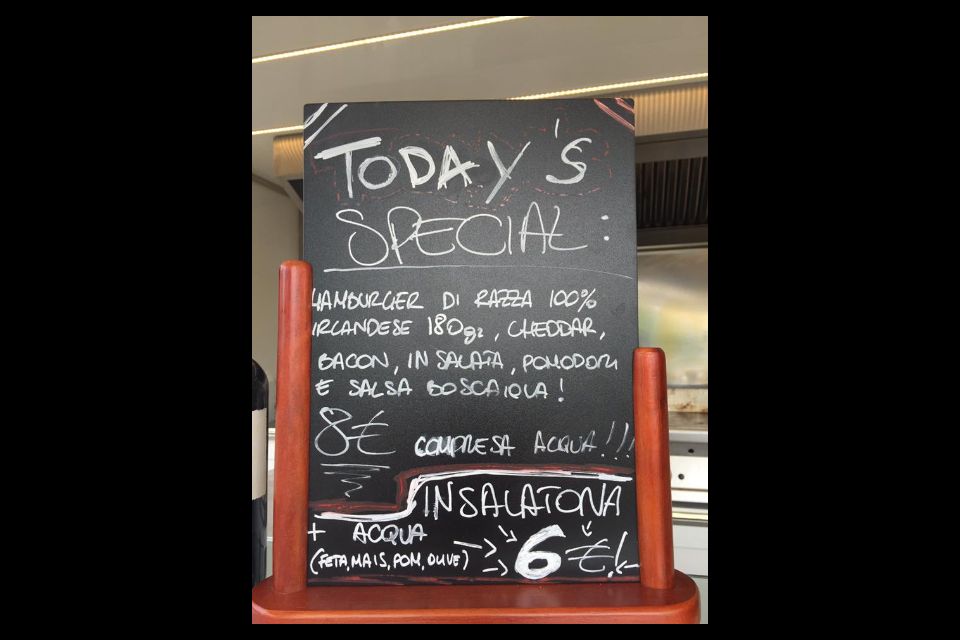 TODAY'S
SPECIAL:
HAMBURGER DI RAZZA 100%
IRLANDESE 180gr, CHEDDAR,
BACON, INSALATA, POMODORI
E SALSA BOSCAIOLA!
8€ COMPRESA ACQUA!!!
INSALATONA
+ ACQUA
(FETA, MAIS, POM, OLIVE) 6€!